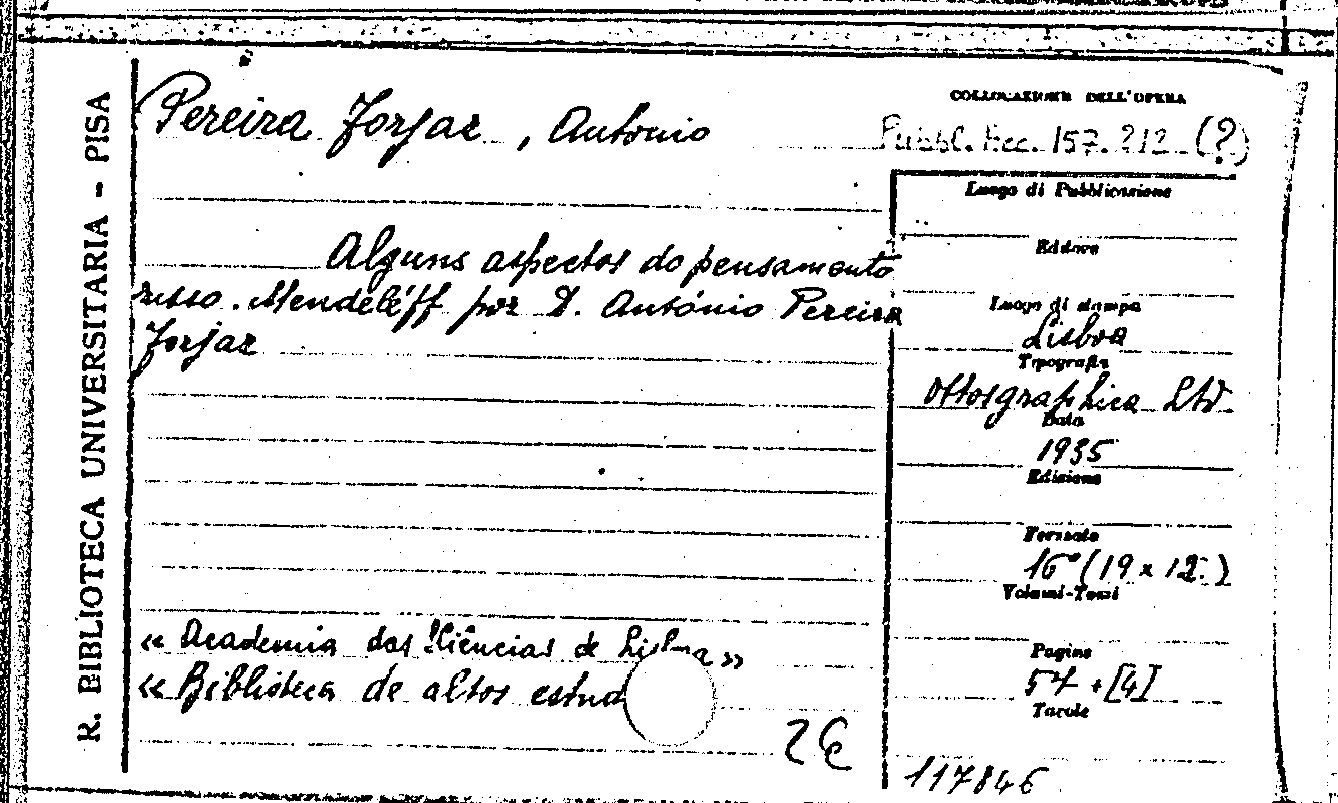 R. BIBLIOTECA UNIVERSITARIA - PISA
Pereira Forjaz, António
Alguns aspectos do pensamento
russo. Mendeléff por D. António Pereira
Forjaz
« Academia das Ciências de Lisboa »
« Biblioteca de altos estud
COLLOCAZIONE DELL'OPERA
Pubbl. Acc. 157. 212 (?)
Luogo di Pubblicazione
Editore
Luogo di stampa
Lisboa
Tipografia
Ottosgraphica Ltd
Data
1935
Edizione
Formato
16° (19 x 12.)
Volumi-Tomi
Pagine
54 + [4]
Tavole
117846